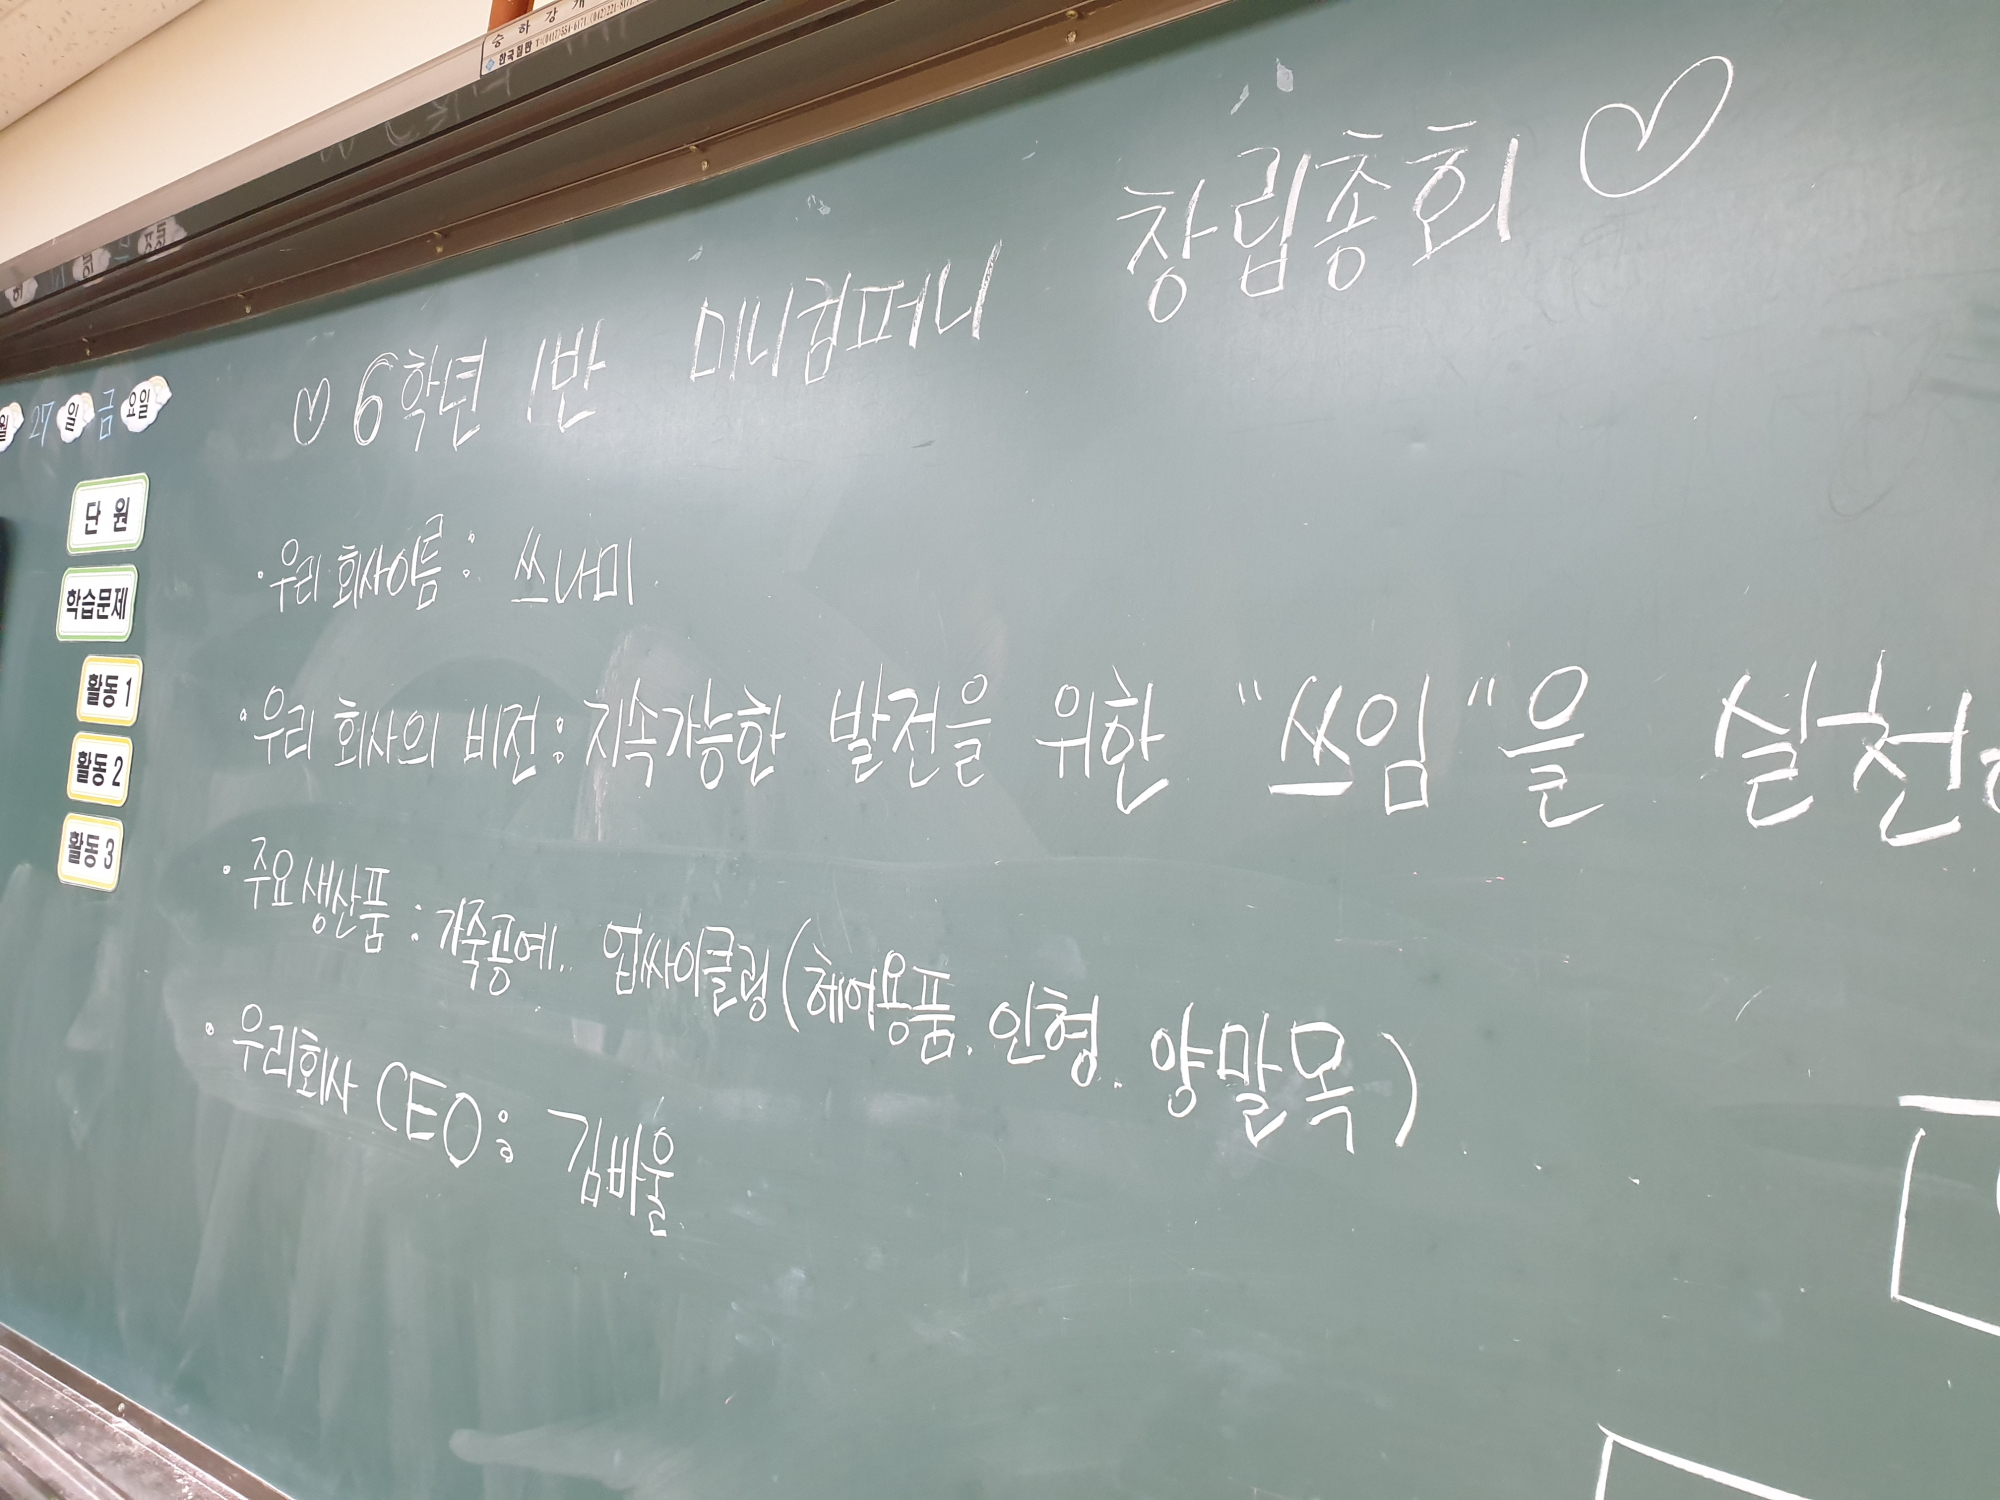 승하강개
한국칠판 T:(041)554-6171, (042)221-8171
♡ 6학년 1반 미니컴퍼니 창립총회 ♡
월 27일 금요일
단원
학습문제
활동1
활동2
활동3
· 우리 회사이름 : 쓰나미
· 우리 회사의 비전 : 지속가능한 발전을 위한 "쓰임"을 실천
· 주요생산품 : 가죽공예.. 업싸이클링(헤어용품. 인형. 양말목)
· 우리회사 CEO : 김바울